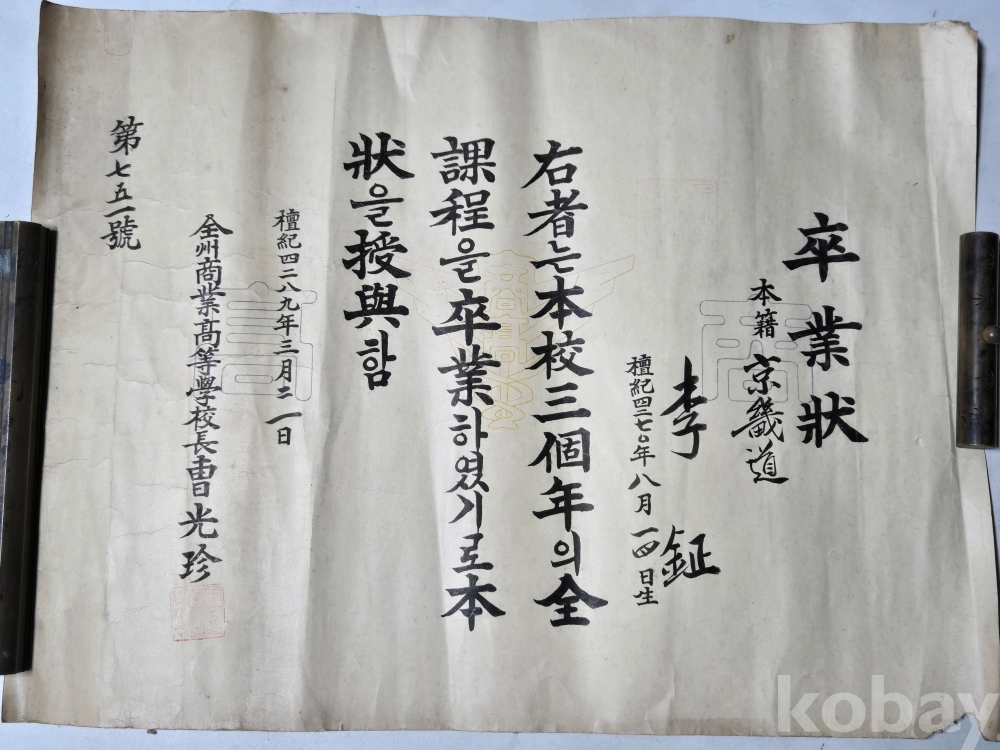 卒業狀
本籍 京畿道
李 鉦
檀紀四二七〇年八月一四日生
右者는本校三個年의全
課程을卒業하였기로本
狀을授與함
檀紀四二八九年三月二一日
全州商業高等學校長曺光珍
第七五一號
kobay